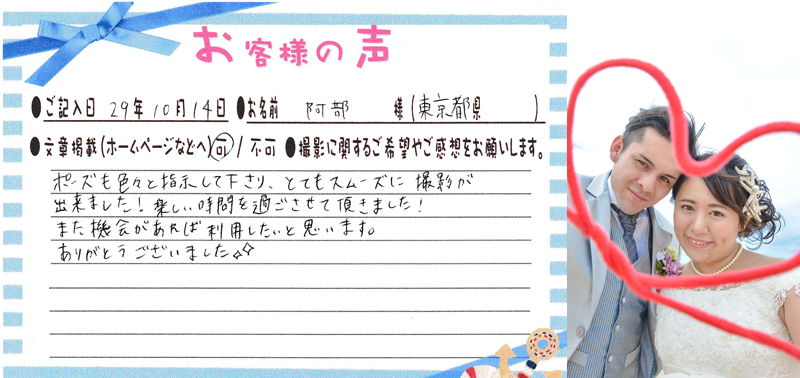 お客様の声
●ご記入日 29年10月14日 ●お名前 阿部 様(東京都県 )
●文章掲載(ホームページなどへ)可/不可 ●撮影に関するご希望やご感想をお願いします。
ポーズも色々と指示して下さり、とてもスムーズに撮影が
出来ました!楽しい時間を過ごさせて頂きました!
また機会があれば利用したいと思います。
ありがとうございました